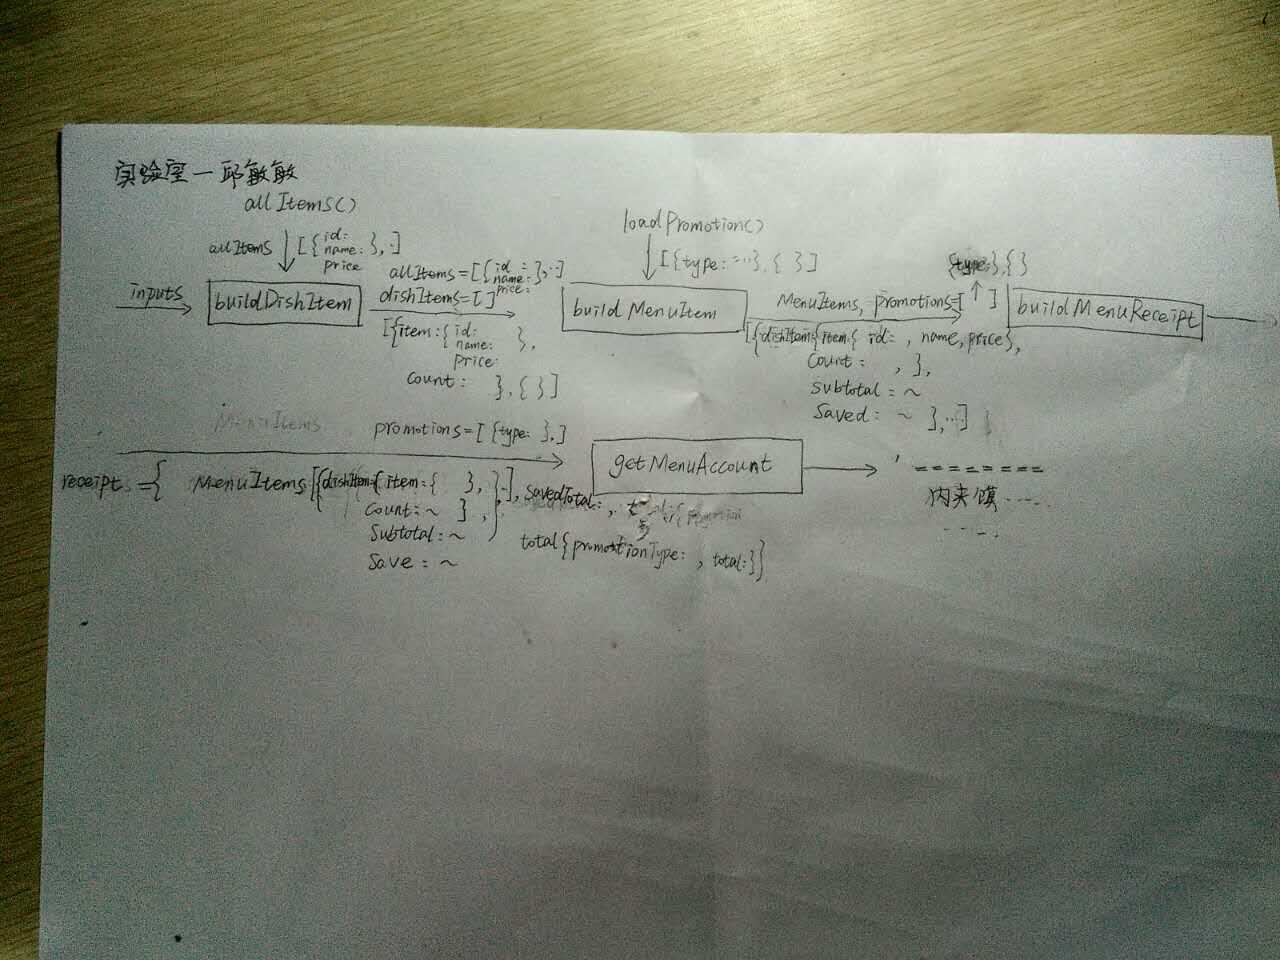 实验室一邱敏敏
allItems()
allItems [{id:
name: },..]
price
inputs
buildDishItem
allItems=[{id :
name: },..]
price:
dishItems=[ ]
[{item:{ id:
name: },
price:
count: },{ }]
loadPromotion()
[{type: =...},{ }]
buildMenuItem
{type: },{ }
MenuItems, promotions=[ ]
[{dishItem{item:{ id: , name, price},
count: , },
subtotal: ~
Saved: ~ },...]
buildMenuReceipt
MenuItems
promotions=[ {type: },]
receipt={ MenuItems[{dishItem:{ item:{ }, },..], savedTotal: ,
count:~ } ,
Subtotal:~
Save : ~
total{promotionType: , total:}}
getMenuAccount
' ========
肉夹馍 ....
....